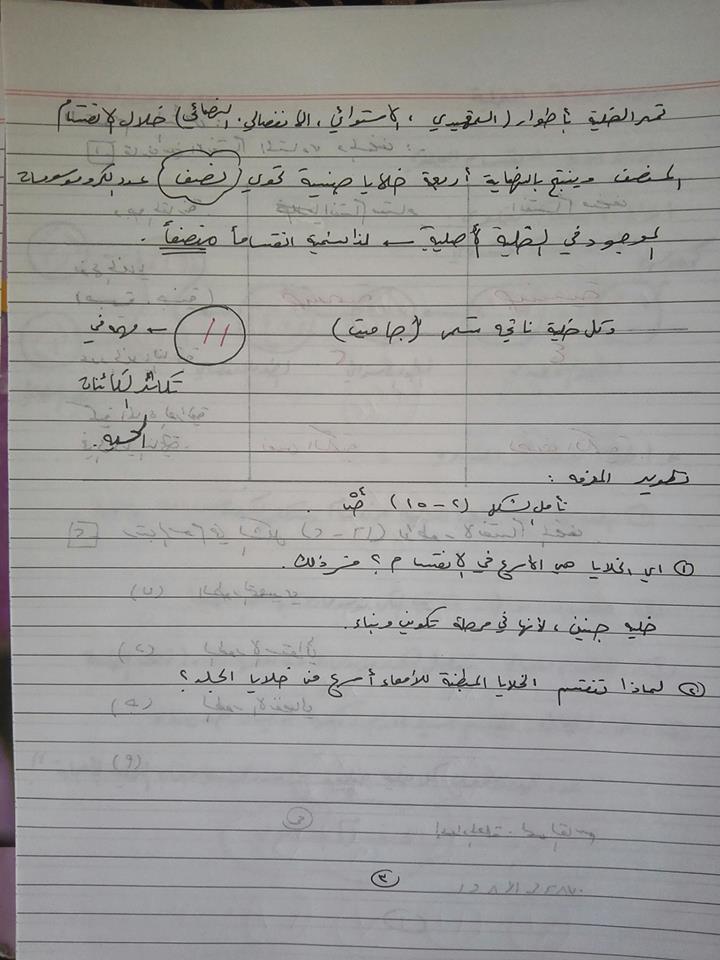 تمر الخلية بأطوار (التمهيدي ، الاستوائي ، الانفصالي ، النهائي) خلال الانقسام
المنصف وينتج بالنهاية أربعة خلايا جنينية تحوي (نصف) عدد الكروموسومات
الموجود في الخلية الأصلية ← لذا سمية انقساماً منصفاً .
وكل خلية ناتجه تسمى (جاميت) ← مهمه في
تكاثر الكائنات
الحيه.
تطوير المعرفه :
تأمل الشكل (٢ - ١٥) ص٥٥ .
① اي الخلايا هي الأسرع في الانقسام ؟ فسر ذلك .
خليه جنين ، لأنها في مرحلة تكوين وبناء .
② لماذا تنقسم الخلايا المبطنة للأمعاء أسرع من خلايا الجلد ؟
③